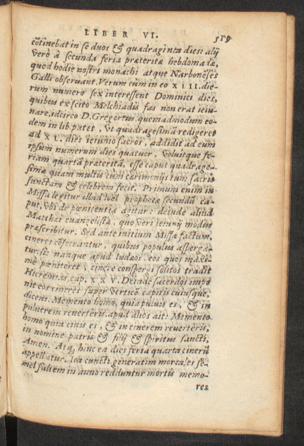 LIBER VI.
cōtinebat in se duos & quadraginta dies: alij
verò à secunda feria præterita hebdomada,
quod hodie nostri monachi atque Narbonēses
Galli observant. Verum cùm in eo XIIII. die-
rum numero sex interessent Dominici dies,
quibus ex scito Melchiadis fas non erat ieiu-
nare, adiecit D. Gregorius quemadmodum eo-
dem in lib. patet, Vt quadragesimā redigeret
ad XL. dies ieiunio sacros, addidit ad eum
ipsum numerum dies quatuor. Voluitque fe-
riam quartā præteritā, esse caput quadrage-
simæ quam multis cum cærimonijs tum sacrā
sanctam & celebrem fecit. Primum enim in
Missa legitur illoīd uel prophetæ secundū ca-
put, vbi de pœnitentia agitur: deinde aliud
Matthæi euangelistæ, quo veri ieiunij modus
præscribitur. Sed ante initium Missæ factum,
cineres cōsecrantur, quibus populus asperge-
tur: sic nanque apud Iudæos, eos quos maxi-
mè pœniteret, cinere conspergi solitos tradit
Hieremias cap. XXV. Deinde sacerdos impo-
nit eos cineres super verticē capitis cuiusque,
dicens, Memento homo, quia puluis es, & in
puluerem reuerteris. apud alios ait: Memento
homo quia cinis es, & in cinerem reuerteris,
in nomine patris & filij & spiritus sancti,
Amen. Atq; hinc ea dies feria quarta cinerū
appellatur. Ioā cuncti generatim mortales se-
mel saltem in anno redduntur mortis memo-
res